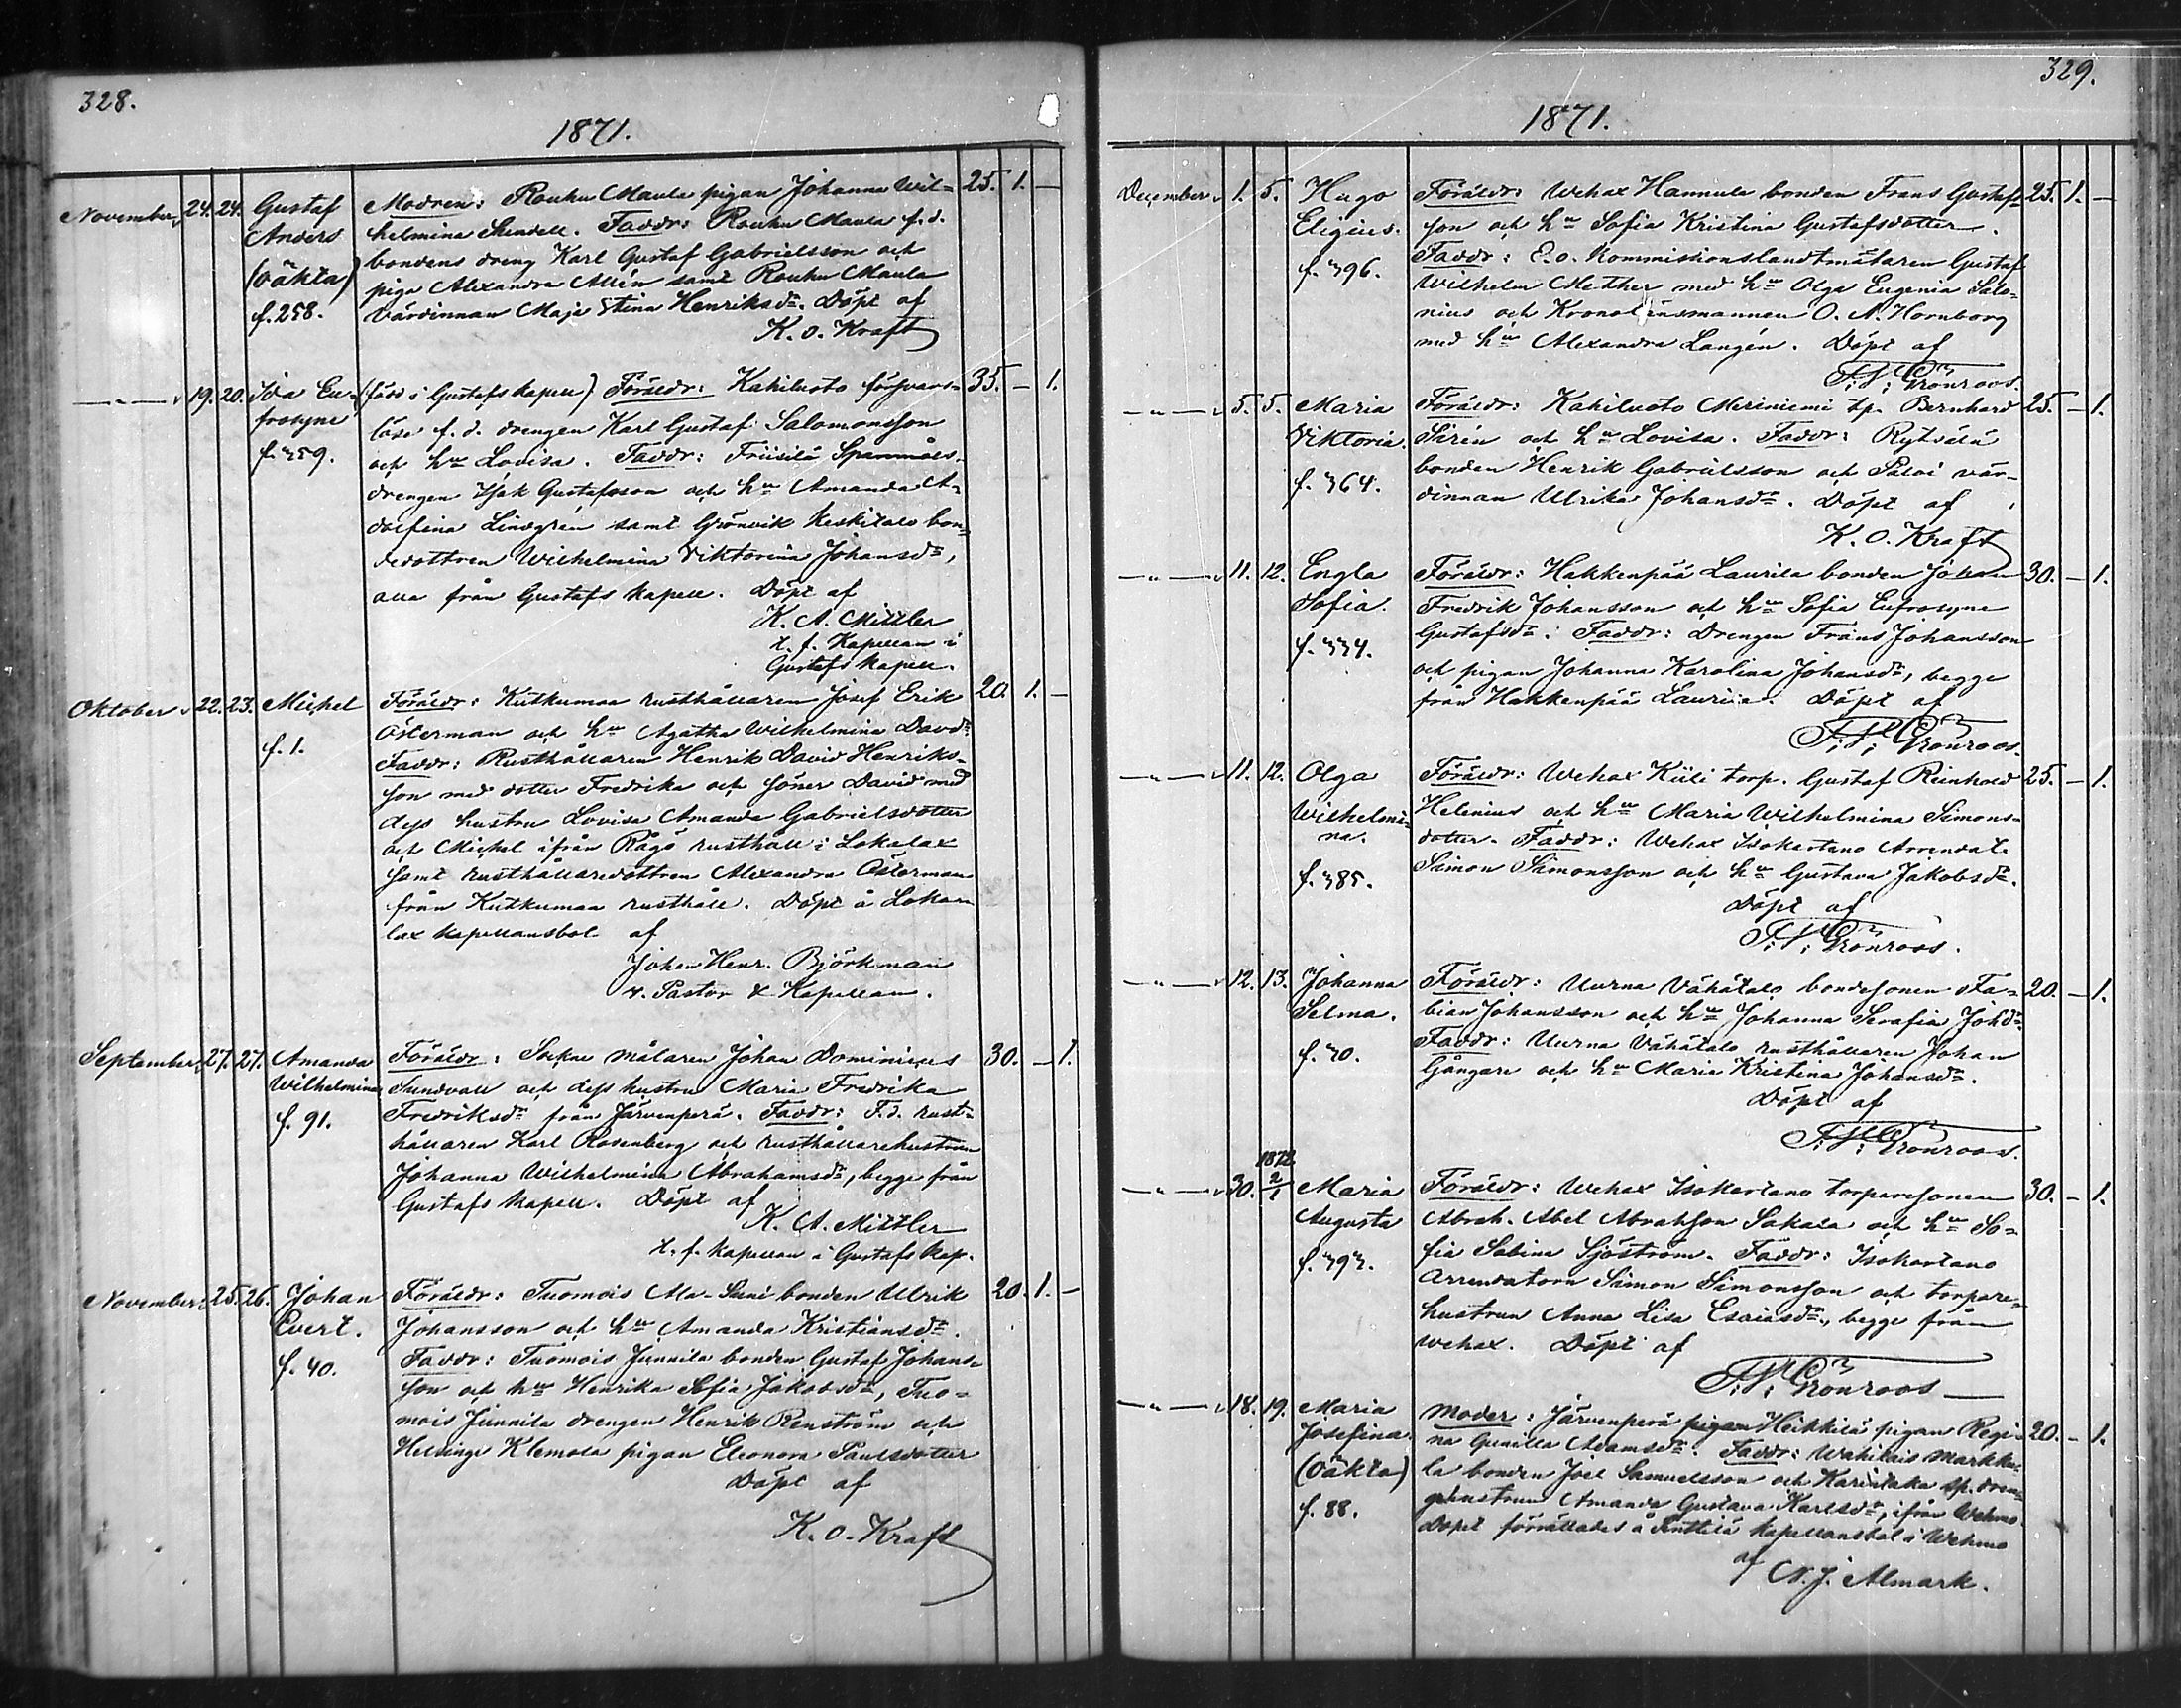 328.
1871.
November 24. 24. Gustaf Modren: Rouhu Maula pigan Johanna Wil- 25. 1. —
Anders helmina Stendell. Faddr: Rouhu Maula f. d.
(oäkta) bondens dreng Karl Gustaf Gabrielsson och
piga Alexandra Allén samt Rouhu Maula
f. 258. värdinnan Maja Stina Henriksdr. Döpt af
K. O. Kraft
—„— 19. 20. Ida Eu- (född i Gustafs kapell) Föräldr: Kahiluoto försvars- 35. — 1.
frosyne löse f. d. drengen Karl Gustaf Salomonsson
f. 359. och hu Lovisa. Faddr: Friisilä
drengen Isak Gustafsson och hu Amanda A-
dolfina Lindgrén samt Grönvik Keskitalo bon-
dedottren Wilhelmina Viktorina Johansdr,
alla från Gustafs kapell. Döpt af
K. A. Mittler
t. f. Kapellan i
Gustafs kapell.
Oktober 22. 23. Michel Föräldr: Kutkumaa rusthållaren Josef Erik 20. 1. —
Österman och hu Agatha Wilhelmina Davdr
f. 1. Faddr: Rusthållaren Henrik David Henriks-
son med dotter Fredrika och söner David med
dess hustru Lovisa Amanda Gabrielsdotter
och Michel ifrån Rågö rusthåll i Lokalax
samt rusthållaredottren Alexandra Österman
från Kutkumaa rusthåll. Döpt å Loka-
lax kapellansbol af
Johan Henr. Björkman
v. Pastor & Kapellan.
September 27. 27. Amanda Föräldr: Sockne målaren Johan Dominicus 30. — 1.
Wilhelmina Sundvall och dess hustru Maria Fredrika
Fredriksdr från Järvenperä. Faddr: F. d. rust-
f. 91. hållaren Karl Rosenberg och rusthållarehustrun
Johanna Wilhelmina Abrahamsdr, begge från
Gustafs kapell. Döpt af
K. A. Mittler
t. f. kapellan i Gustafs kap.
November 25. 26. Johan Föräldr: Tuomois Ala-Suni bonden Ulrik 20. 1. —
Evert. Johansson och hu Amanda Kristiansdr.
f. 40. Faddr: Tuomois Junnila bonden Gustaf Johans-
son och hu Henrika Sofia Jakobsdr, Tuo-
mois Junnila drengen Henrik Renström och
Helsinge Klemola pigan Eleonora Paulsdotter
Döpt af
K. O. Kraft
329.
1871.
December 1. 5. Hugo Föräldr: Wehax Hannula bonden Frans Gustafs- 25. 1. —
Eligius. son och hu Sofia Kristina Gustafsdotter.
f. 396. Faddr: E. o. Kommissionslandtmätaren Gustaf
Wilhelm Mether med hu Olga Eugenia Salo-
nius och Kronolänsmannen O. A. Hornborg
med hu Alexandra Langén. Döpt af
F. W. Grönroos.
—„— 5. 5. Maria Föräldr: Kahiluoto Meriniemi tp. Bernhard 25. — 1.
Viktoria. Sirén och hu Lovisa. Faddr: Rytsälä
bonden Henrik Gabrielsson och Paloi vär-
f. 364. dinnan Ulrika Johansdr. Döpt af
K. O. Kraft
—„— 11. 12. Engla Föräldr: Hakkenpää Laurila bonden Johan 30. — 1.
Sofia. Fredrik Johansson och hu Sofia Eufrosyne
f. 334. Gustafsdr. Faddr: Drengen Frans Johansson
och pigan Johanna Karolina Johansdr, begge
från Hakkenpää Laurila. Döpt af
F. W. Grönroos.
—„— 11. 12. Olga Föräldr: Wehax Küli torp. Gustaf Reinhold 25. — 1.
Wilhelmi- Helenius och hu Maria Wilhelmina Simons-
na. dotter. Faddr: Wehax Isokartano Arrendat.
f. 385. Simon Simonsson och hu Gustava Jakobsdr.
Döpt af
F. W. Grönroos.
—„— 12. 13. Johanna Föräldr: Uurna Vähätalo bondesonen Fa- 20. — 1.
Selma. bian Johansson och hu Johanna Serafia Johdr
f. 30. Faddr: Uurna Vähätalo rusthållaren Johan
Gångare och hu Maria Kristina Johansdr.
Döpt af
F. W. Grönroos.
1872
—„— 30. 2/1 Maria Föräldr: Wehax Isokartano torparesonen 30. — 1.
Augusta Abrah. Abel Abrahsson Sakala och hu So-
f. 393. fia Sabina Sjöström. Faddr: Isokartano
Arrendatorn Simon Simonsson och torpare-
hustrun Anna Lisa Esaiasdr, begge från
Wehax. Döpt af
F. W. Grönroos
—„— 18. 19. Maria Moder: Järvenperä pigan Heikkilä pigan Regi- 20. — 1.
Josefina. na Gunilla Adamsdr. Faddr: Wahilais Markku-
(oäkta) la bonden Joel Samuelsson och tp. dren-
f. 88. gehustrun Amanda Gustava Karlsdr, ifrån Wehmo
Dopet förrättades å Anttila kapellansbol i Wehmo
af N. J. Almark.